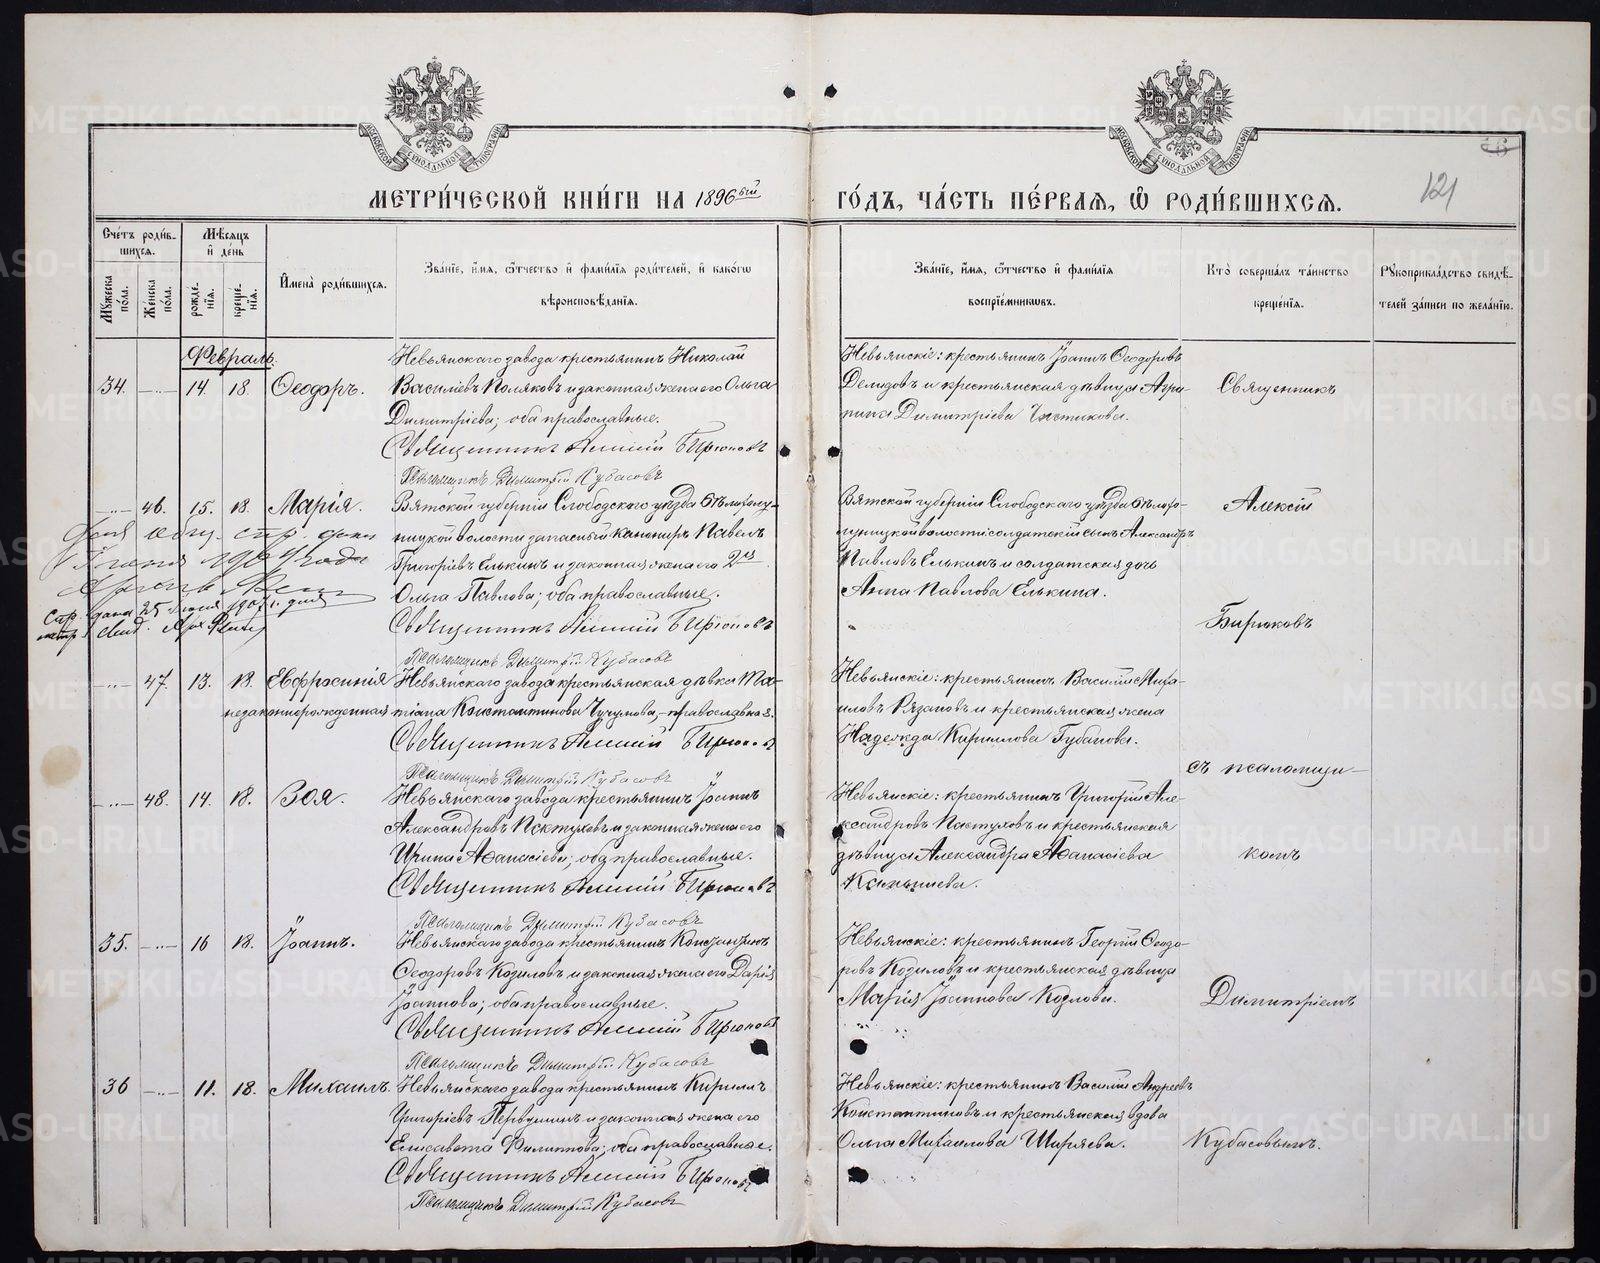 МЕТРИ́ЧЕСКОЙ КНИ́ГИ НА 1896 ый ГО́ДЪ, ЧА́СТЬ ПЕ́РВАѦ, Ѽ РОДИ́ВШИХСѦ.
121
Сче́тъ роди́в-
шихся.
Мѣ́сяцъ
и҆ де́нь
Мꙋ́жеска
пола.
Же́нска
пола.
рожде-
нїя.
креще-
нїя.
И҆мена̀ роди́вшихся.
Зва́нїе, и҆́мя, ѻ҆́тчество и҆ фами́лїя роди́телей, и҆ како́гѡ
вѣроисповѣ́данїя.
Зва́нїе, и҆́мя, ѻ҆́тчество и҆ фами́лїя
воспрїе́мниковъ.
Кто̀ соверша́лъ та́инство
креще́нїя.
Рꙋкоприкла́дство свидѣ́-
телей за́писи по жела́нїю.
Февраль.
34. 14. 18. Ѳеодоръ.
Невьянскаго завода крестьянинъ Николай
Василіевъ Поляковъ и законная жена его Ольга
Димитріева; оба православные.
Священникъ Алексій Бирюковъ
Псаломщикъ Димитрій Кубасовъ
Невьянскіе: крестьянинъ Іоаннъ Ѳеодоровъ
Демидовъ и крестьянская дѣвица Агри-
пина Димитріева Чистикова.
Священникъ
46. 15. 18. Марія.
1904 года
Спр. дана 25 1907 г.
Вятской губерніи Слободского уѣзда Бѣлохолу-
ницкой волости запасный канониръ Павелъ
Григоріевъ Елькинъ и законная жена его 2го
Ольга Павлова; оба православные.
Священникъ Алексій Бирюковъ
Псаломщикъ Димитрій Кубасовъ
Вятской губерніи Слободского уѣзда Бѣлохо-
луницкой волости: солдатскій сынъ Александръ
Павловъ Елькинъ и солдатская дочь
Анна Павлова Елькина.
Алексій
Бирюковъ
47. 13. 18. Евфросинія
незаконнорожденная
Невьянскаго завода крестьянская дѣвка Та-
тіана Константинова православная.
Священникъ Алексій Бирюковъ
Псаломщикъ Димитрій Кубасовъ
Невьянскіе: крестьянинъ Василій Миха-
иловъ Рязановъ и крестьянская жена
Надежда Кириллова Губанова.
съ псаломщи-
48. 14. 18. Зоя.
Невьянскаго завода крестьянинъ Іоаннъ
Александровъ Пастуховъ и законная жена его
Ирина Аѳанасіева; оба православные.
Священникъ Алексій Бирюковъ
Псаломщикъ Димитрій Кубасовъ
Невьянскіе: крестьянинъ Григорій Але-
ксандровъ Пастуховъ и крестьянская
дѣвица Александра Аѳанасіева
комъ
35. 16 18. Іоаннъ.
Невьянскаго завода крестьянинъ Константинъ
Ѳеодоровъ Козловъ и законная жена его Дарія
Іоаннова; оба православные.
Священникъ Алексій Бирюковъ
Псаломщикъ Димитрій Кубасовъ
Невьянскіе: крестьянинъ Георгій Ѳеодо-
ровъ Козловъ и крестьянская дѣвица
Марія Іоаннова Козлова.
Димитріемъ
36 11. 18. Михаилъ.
Невьянскаго завода крестьянинъ Кириллъ
Григоріевъ Первушинъ и законная жена его
Елисавета Филиппова; оба православные.
Священникъ Алексій Бирюковъ
Псаломщикъ Димитрій Кубасовъ
Невьянскіе: крестьянинъ Василій Андреевъ
Константиновъ и крестьянская вдова
Ольга Михаилова Ширяева.
Кубасовымъ.
METRIKI.GASO-URAL.RU